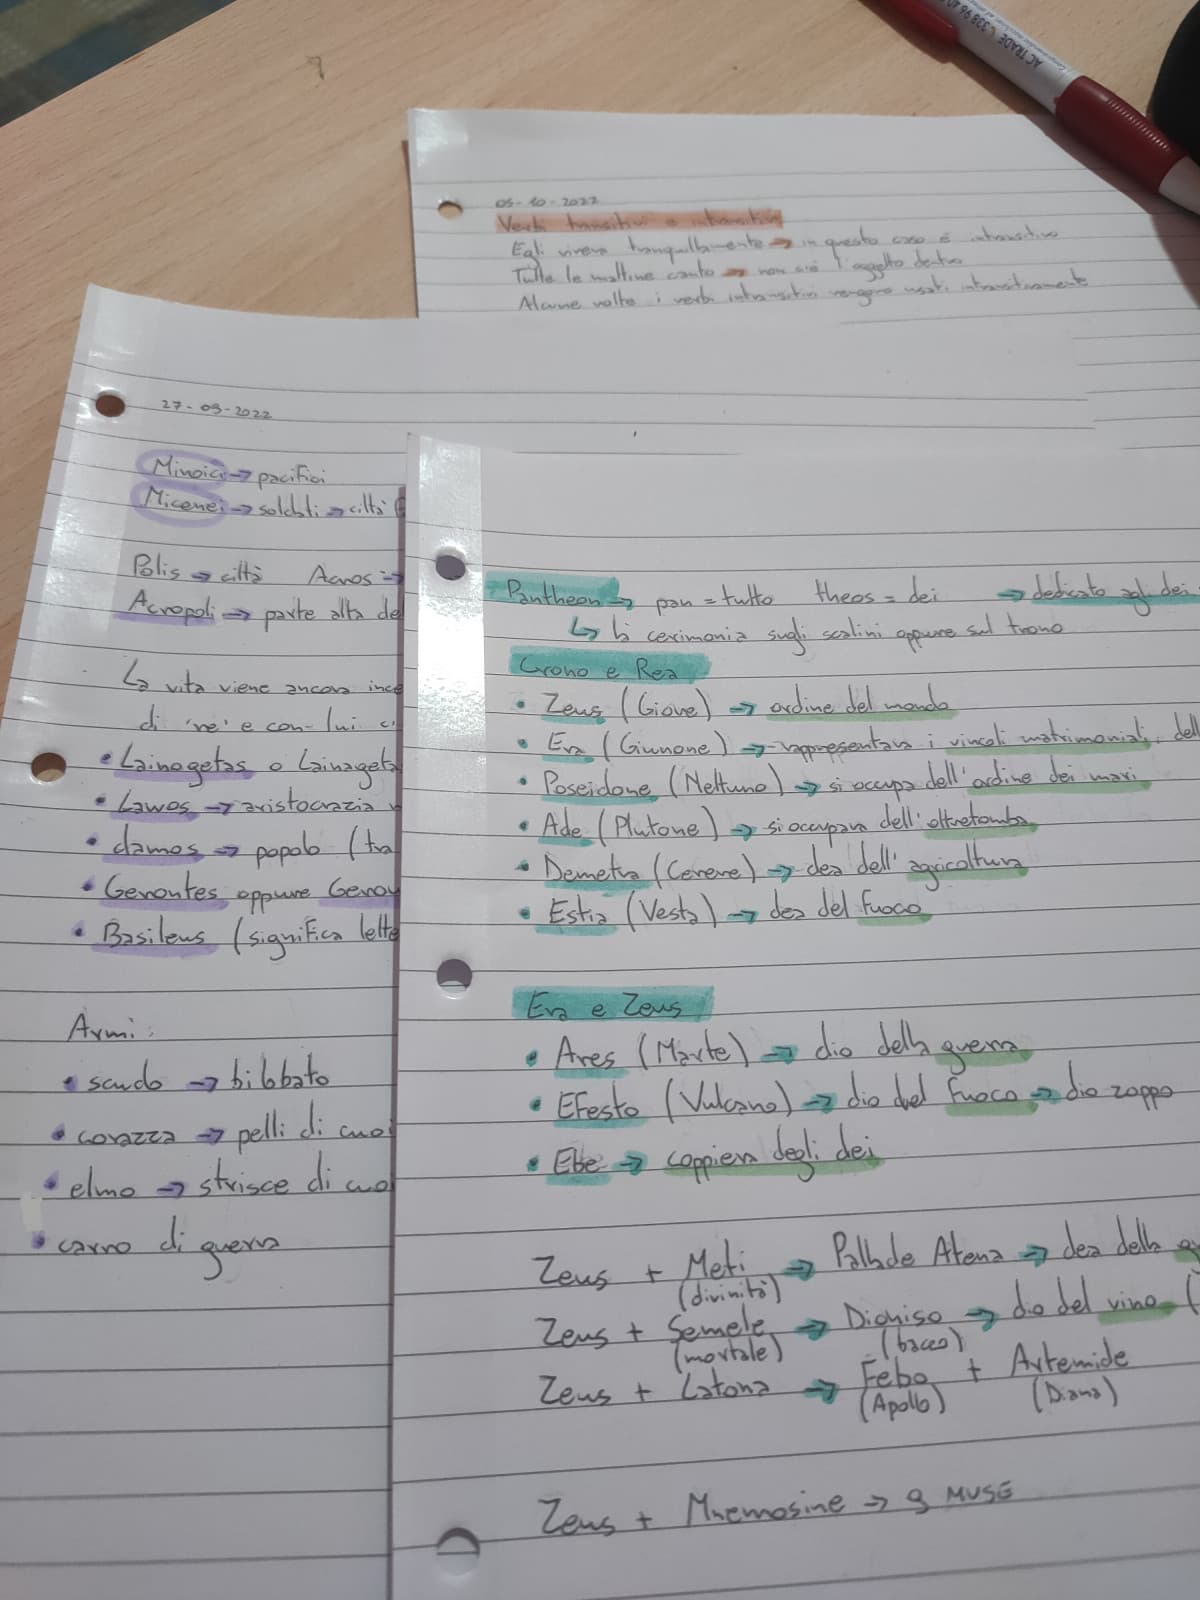 AC TRADE 338 96 40
05-10-2022
Verbi transitivi e intransitivi
Egli viveva tranquillamente → in questo caso è intransitivo
Tutte le mattine canto → non c'è l'oggetto dentro
Alcune volte i verbi intransitivi vengono usati intransitivamente
27-09-2022
Minoici → pacifici
Micenei → soldati → città
Polis → città Acros →
Acropoli → parte alta de
La vita viene ancora ince
di 're' e con lui
• Lainagetas o Lainageta
• Lawos → aristocrazia
• damos → popolo (tra
• Gerontes oppure Gerou
• Basileus (significa lette
Armi:
• scudo → bilobato
• corazza → pelli di cuoi
• elmo → strisce di cuo
• carro di guerra
Pantheon → pan = tutto theos = dei → dedicato agli dei
↳ la cerimonia sugli scalini oppure sul trono
Crono e Rea
• Zeus (Giove) → ordine del mondo
• Era (Giunone) → rappresentava i vincoli matrimoniali, dell
• Poseidone (Nettuno) → si occupa dell'ordine dei mari
• Ade (Plutone) → si occupava dell'oltretomba
• Demetra (Cerere) → dea dell'agricoltura
• Estia (Vesta) → dea del fuoco
Era e Zeus
• Ares (Marte) → dio della guerra
• Efesto (Vulcano) → dio del fuoco → dio zoppo
• Ebe → coppiera degli dei
Zeus + Meti → Pallade Atena → dea della
(divinità)
Zeus + Semele → Dioniso → dio del vino (
(mortale) (bacco)
Zeus + Latona → Febo + Artemide
(Apollo) (Diana)
Zeus + Mnemosine → 9 MUSE